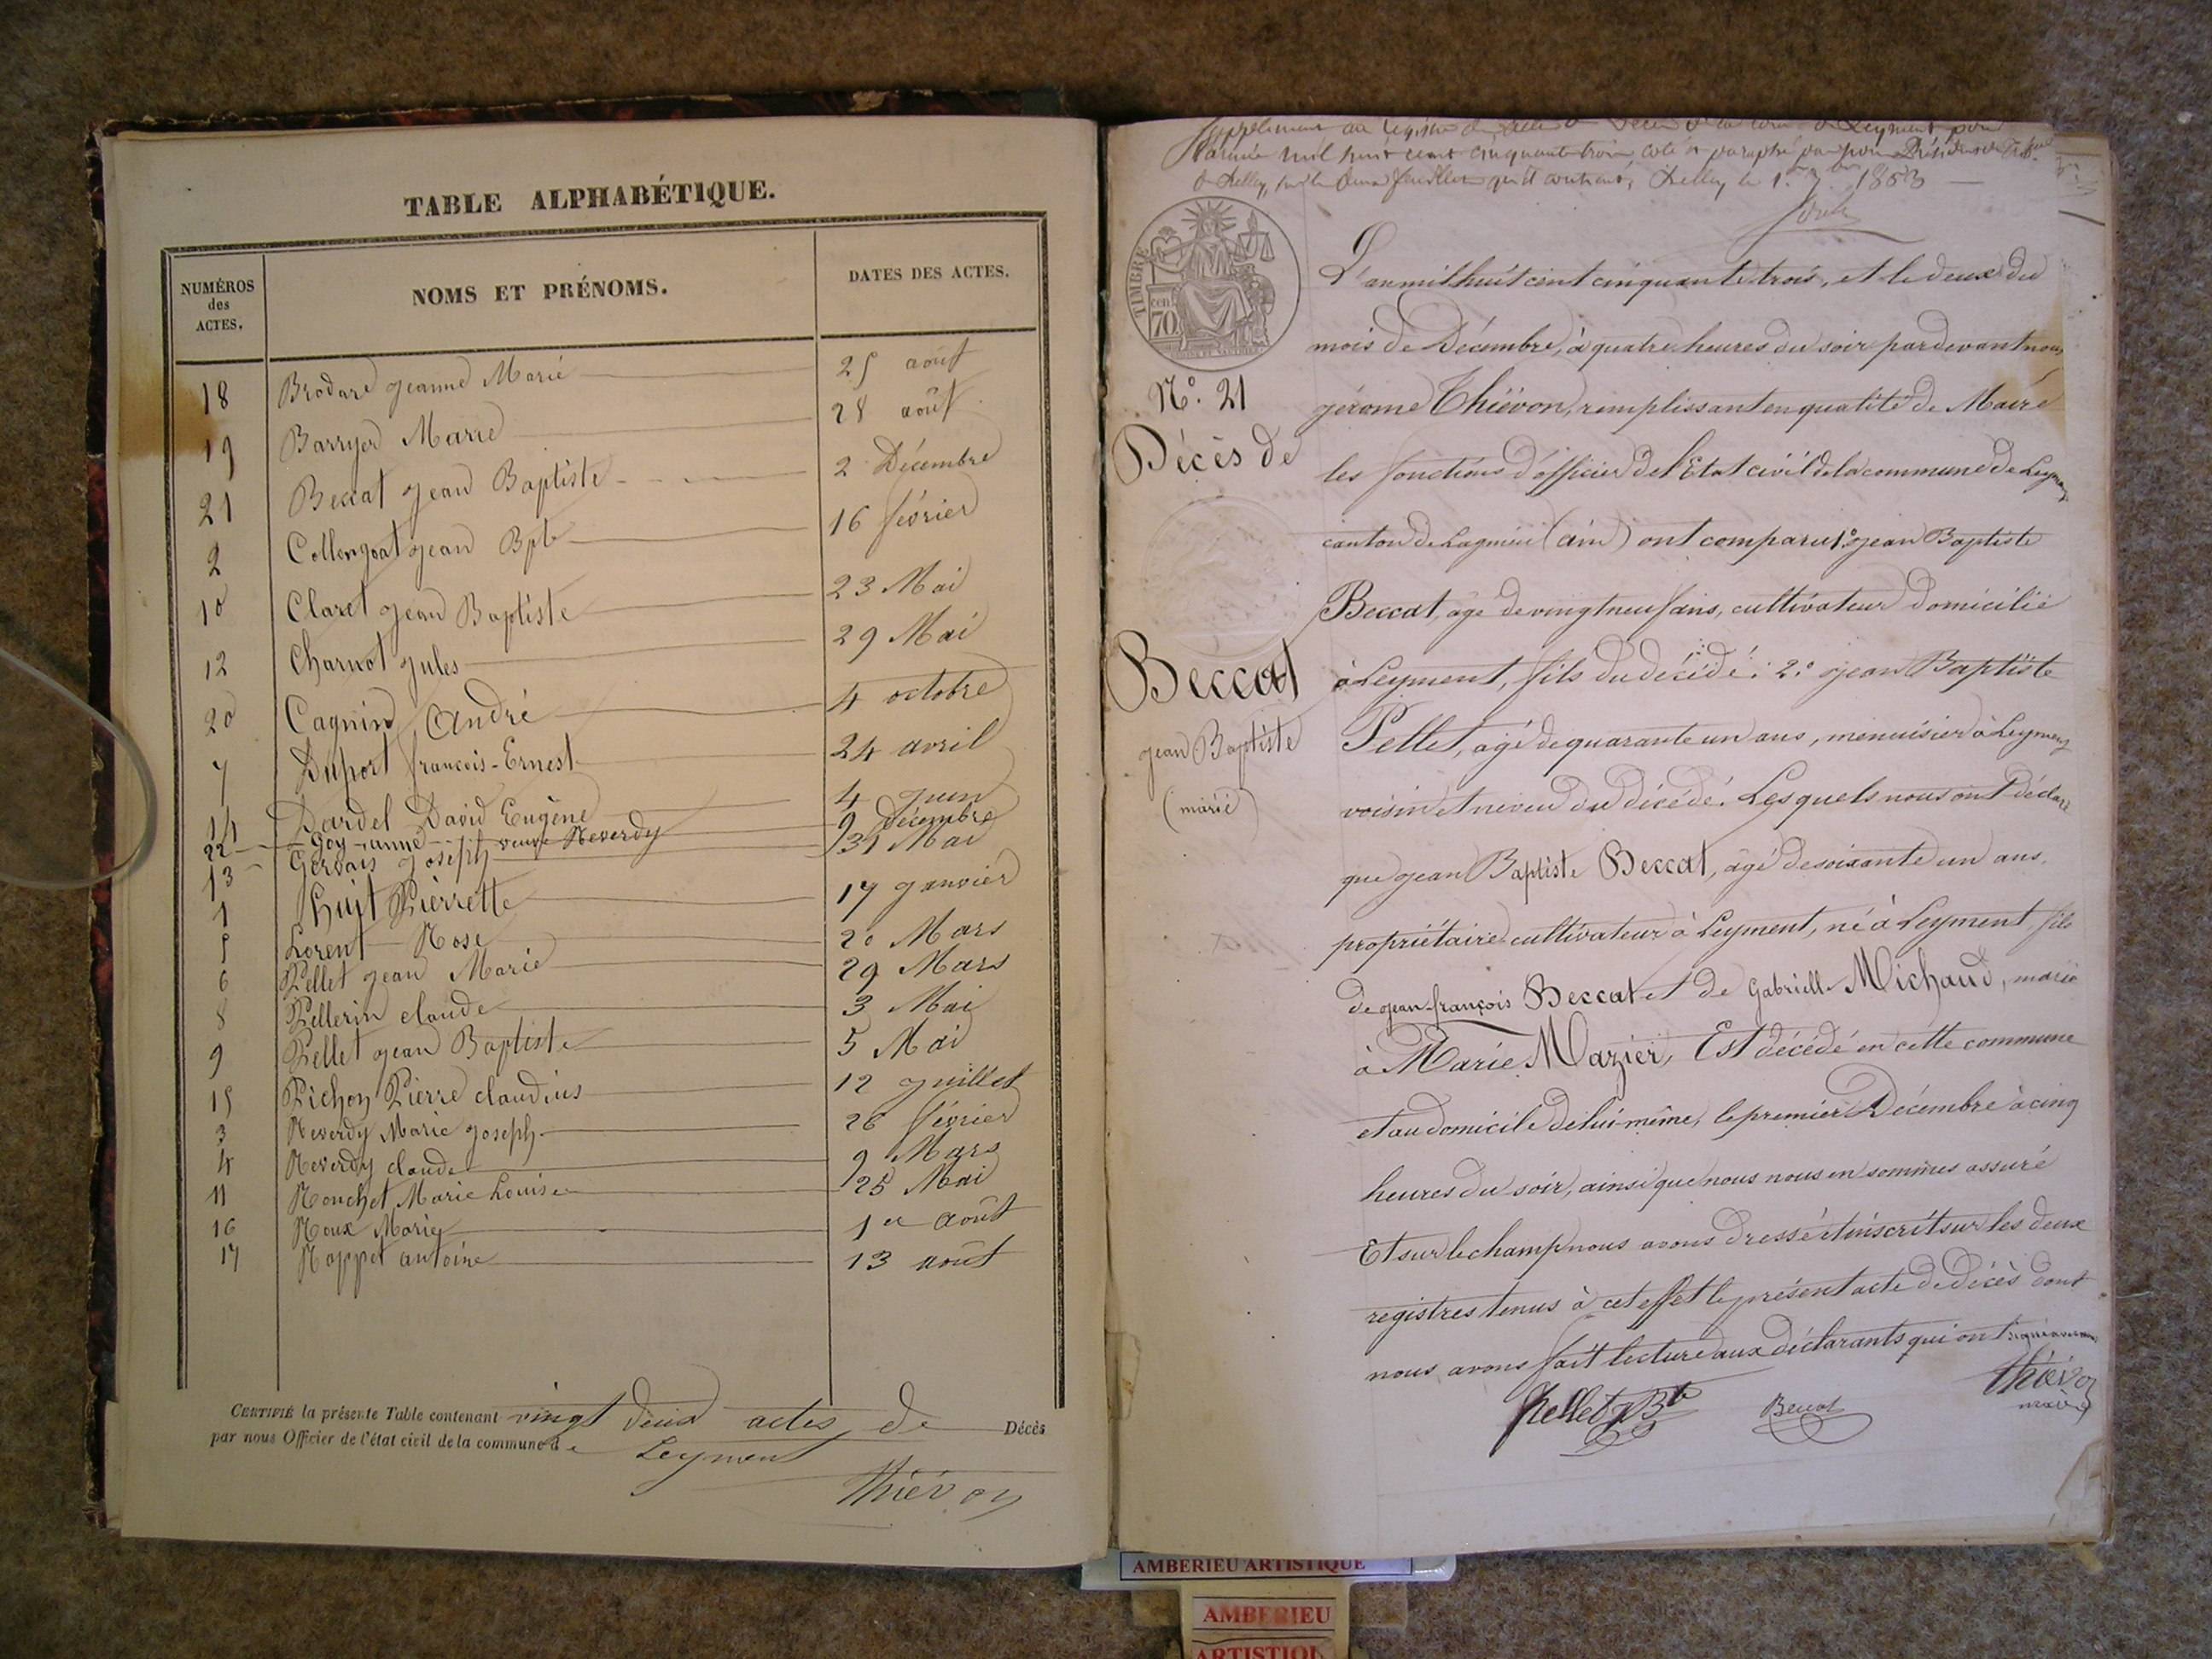 TABLE ALPHABÉTIQUE.
NUMÉROS des ACTES. NOMS ET PRÉNOMS. DATES DES ACTES.
18 Brodard Jeanne Marie 25 août
19 Barryer Marie 28 août
21 Beccat Jean Baptiste 2 Décembre
2 Collengeat Jean Bpte 16 février
10 Claret Jean Baptiste 23 Mai
12 Charnot Jules 29 Mai
20 Cagnin André 4 octobre
7 Duport françois-Ernest 24 avril
14 Dardel David Eugène 4 Juin
22 Goy anne veuve Reverdy 9 décembre
13 Gervais Joseph 31 Mai
1 Huit Pierrette 17 Janvier
5 Lorent Rose 20 Mars
6 Pellet Jean Marie 29 Mars
8 Pellerin claude 3 Mai
9 Pellet Jean Baptiste 5 Mai
15 Pichon Pierre claudius 12 Juillet
3 Reverdy Marie Joseph 26 février
4 Reverdy claude 9 Mars
11 Ronchet Marie Louise 25 Mai
16 Roux Marie 1er août
17 Rappet antoine 13 août
CERTIFIÉ la présente Table contenant vingt deux actes de Décès
par nous Officier de l'état civil de la commune de Leyment
Thiévon
Supplément au registre de Décès de la com. de Leyment pour
l'année mil huit cent cinquante trois coté et paraphé par nous Président du
de Belley, sur les deux feuillets qu'il contient, Belley le 1er 1853
TIMBRE
cen 70
L'an mil huit cent cinquante trois, et le deux du
mois de Décembre, à quatre heures du soir pardevant nous
N° 21
jérome Thiévon, remplissant en qualité de Maire
Décès de
les fonctions d'officier de l'Etat civil de la commune de Leyment
canton de Lagnieu (ain) ont comparu 1° Jean Baptiste
Beccat, âgé de vingt neuf ans, cultivateur domicilié
Beccat
à Leyment, fils du décédé: 2° Jean Baptiste
Jean Baptiste
Pellet, âgé de quarante un ans, menuisier à Leyment
(marié)
voisin et neveu du décédé. Lesquels nous ont déclaré
que Jean Baptiste Beccat, âgé de soixante un ans,
propriétaire cultivateur à Leyment, né à Leyment, fils
de Jean françois Beccat et de Gabrielle Michaud, marié
à Marie Mazier, Est décédé en cette commune
et au domicile de lui-même, le premier Décembre à cinq
heures du soir, ainsi que nous nous en sommes assuré
Et sur le champ nous avons dressé et inscrit sur les deux
registres tenus à cet effet le présent acte de décès dont
nous avons fait lecture aux déclarants qui ont signé avec nous
Pellet J Bte Beccat Thiévon
maire
AMBERIEU ARTISTIQUE
AMBERIEU
ARTISTIQUE